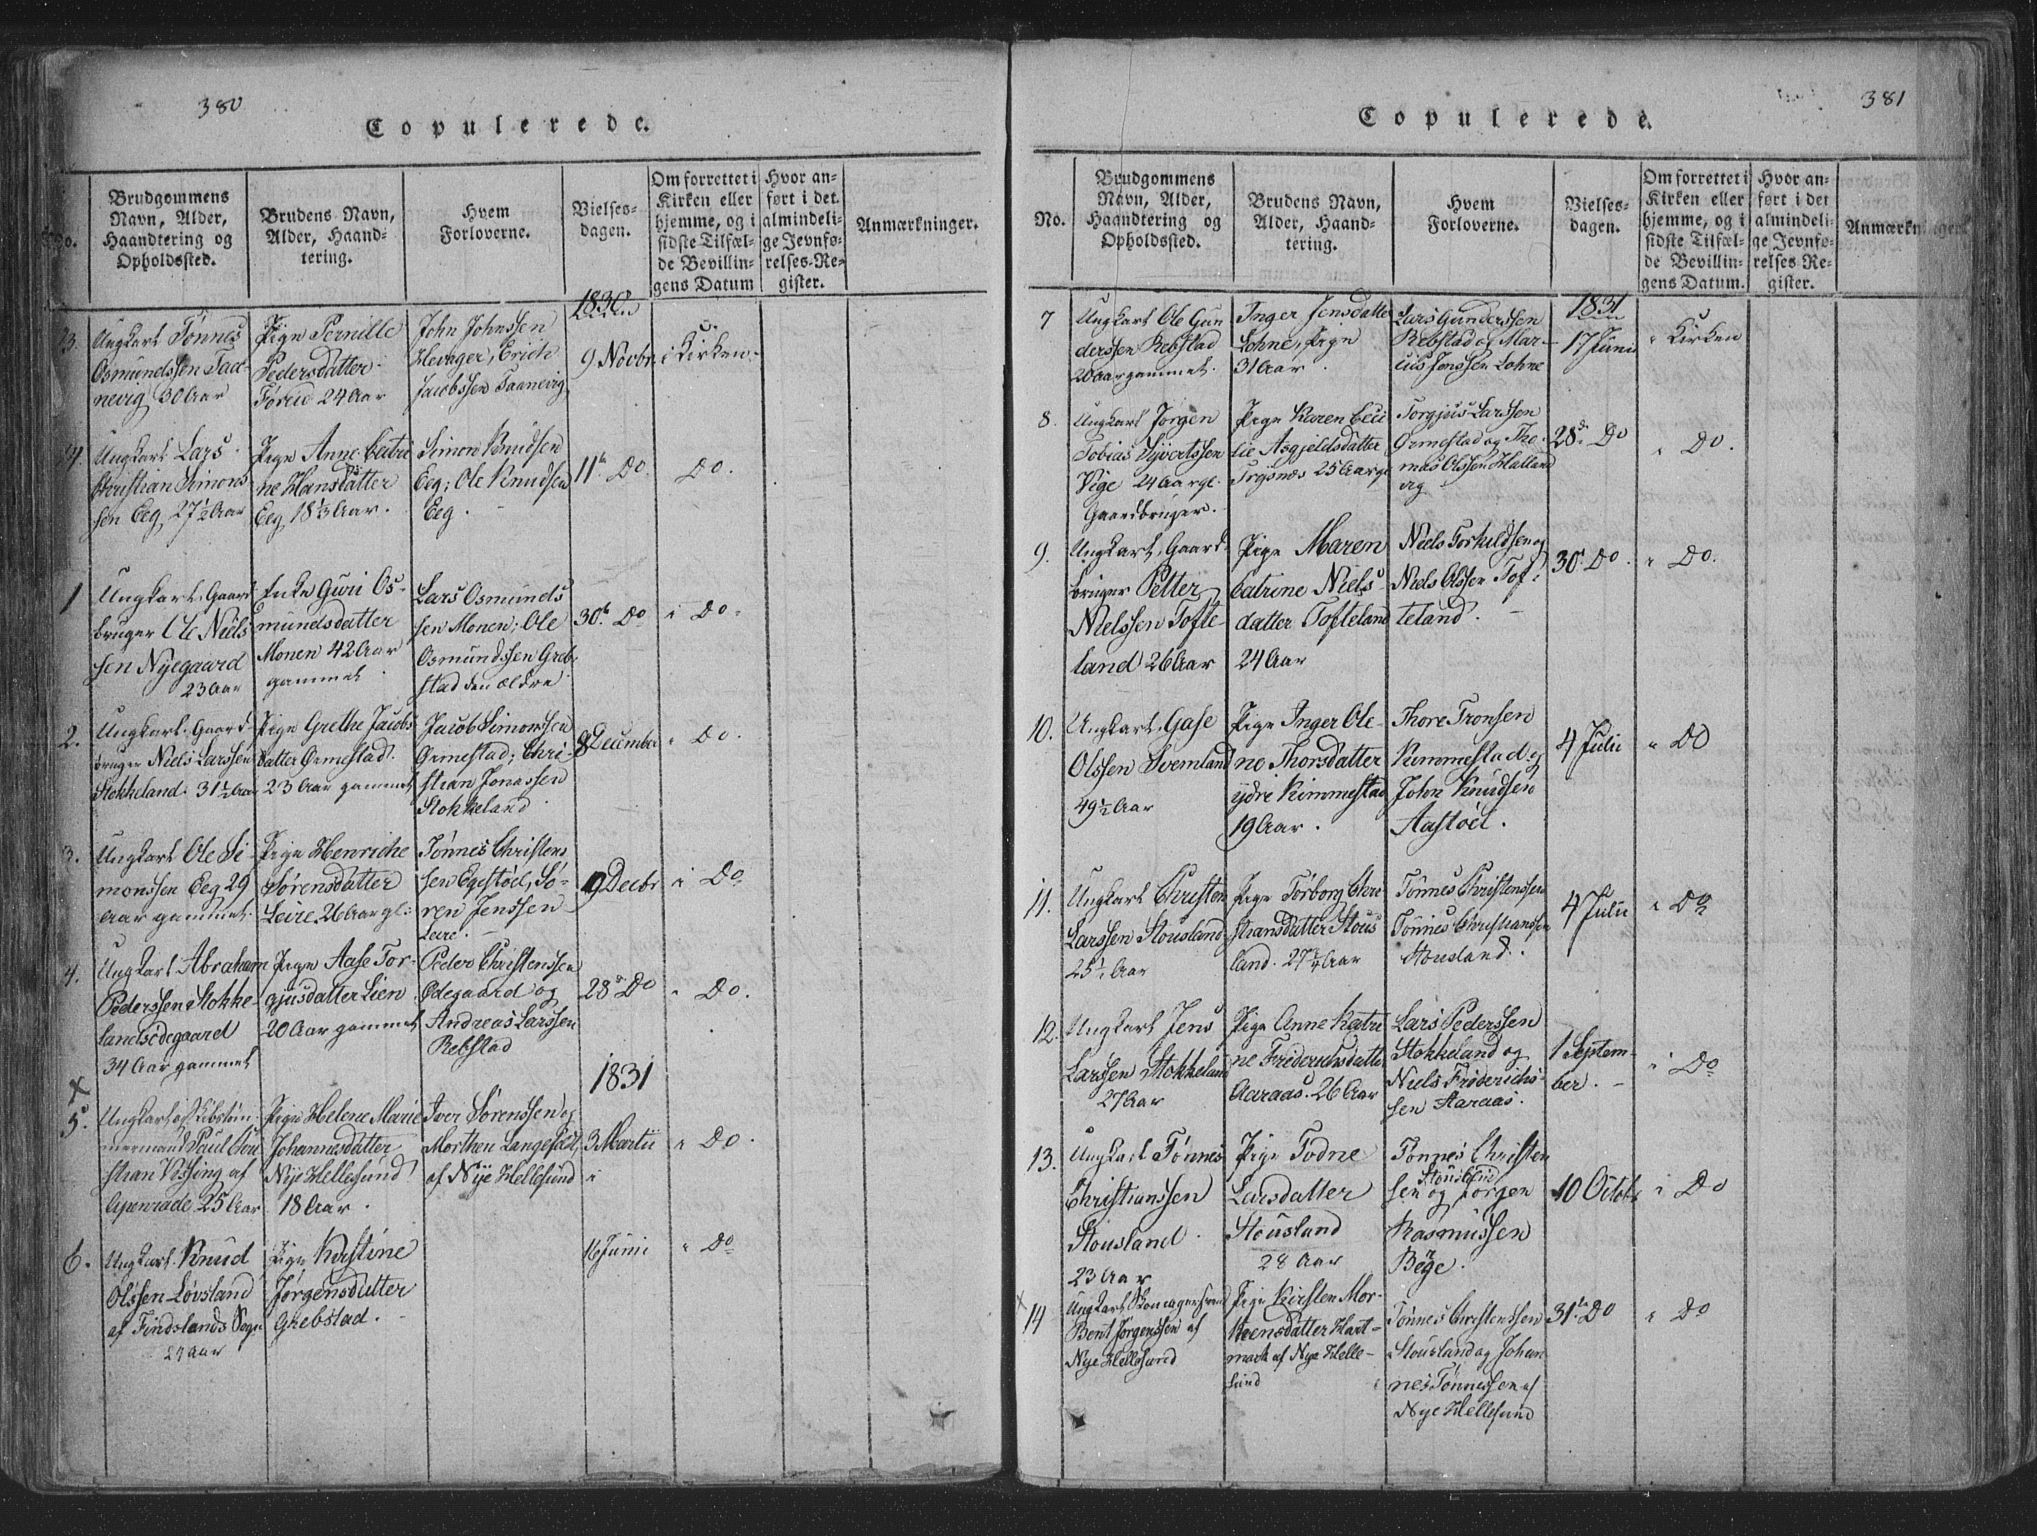 380
Copulerede.
No.
Brudgommens
Navn, Alder,
Haandtering og
Opholdssted.
Brudens Navn,
Alder, Haand-
tering.
Hvem
Forloverne.
Vielses-
dagen.
Om forrettet i
Kirken eller
hjemme, og i
sidste Tilfæl-
de Bevillin-
gens Datum
Hvor an-
ført i det
almindeli-
ge Jevnfø-
relses-Re-
gister.
Anmærkninger.
1830
Ungkarl Tønnes
Osmundssen Taa-
nevig 30 Aar
Pige Pernille
Pedersdatter
24 Aar
John Johnssen
Hevager, Erich
Jacobssen Taanevig
9 Novbr.
i Kirken.
Ungkarl Lars
Christian Simons
sen Eeg, 27½ Aar
Pige Anne Catri
ne Hansdatter
Eeg 18⅓ Aar.
Simon Knudsen
Eeg; Ole Knudsen
Eeg.
11te Do
Do.
1
Ungkarl, Gaard
bruger Ole Niels
sen Nyegaard
23 Aar
Enke Guri Os-
mundsdatter
Monen 42 Aar
gammel
Lars Osmunds
sen Monen; Ole
Osmundssen Greb
stad den ældre
30te Do
i Do.
2.
Ungkarl, Gaard-
bruger Niels Larssen
Stokkeland. 31½ Aar
Pige Grethe Jacobs
datter Ørmestad.
23 Aar gammel
Jacob Simonssen
Ørmestad; Chri-
stian Jonassen
Stokkeland
8 December
" Do.
3.
Ungkarl Ole Si-
monssen Eeg 29
Aar gammel.
Pige Henriche
Sørensdatter
Leire, 26 Aar gl:
Tønnes Christens
sen Egestøel, Sø-
ren Jenssen
Leire.
9 Decbr
i Do
4.
Ungkarl Abraham
Pederssen Stokke-
landsødegaard
34 Aar gammel
Pige Aase Tor-
gjusdatter Leen
20 Aar gammel
Peder Christenssen
Ødegaard og
Andreas Larssen
Rebstad
28de Do
" Do.
1831
x
5.
mermand Poul Chri
stian Vissing af
Apenrade 25 Aar
Pige Helene Marie
Johannesdatter
Nye Hellesund
18 Aar.
Iver Sørenssen og
Morthen Langefeldt,
af Nye Hellesund
3 Martii
" Do.
6.
Ungkarl Knud
Olssen Løvsland
af Findslands Sogn
Pige Kirstine
Jørgensdatter
Grebstad.
16 Juni
" Do
381
Copulerede.
No.
Brudgommens
Navn, Alder,
Haandtering og
Opholdssted.
Brudens Navn,
Alder, Haand-
tering.
Hvem
Forloverne.
Vielses-
dagen.
Om forrettet i
Kirken eller
hjemme, og i
sidste Tilfæl-
de Bevillin-
gens Datum.
Hvor an-
ført i det
almindeli-
ge Jevnfø-
relses Re-
gister.
Anmærkninger.
1831
7
Ungkarl Ole Gun
derssen Rebstad
Aar gammel.
Inger Jensdatter
Lohne, Pige
31 Aar.
Lars Gunderssen
Rebstad og Mar-
cus Jenssen Lohne
17 Junii
" Kirken
8.
Ungkarl Jørgen
Tobias Syvertssen
Vige 24 Aar gl.
Gaardbruger.
Pige Karen Ceci
lie Asgjeldsdatter
Trysnæs 25 Aar gl
Torgjus Larssen
Ørmestad og Tho-
mas Olssen Halland
vig
28de Do
" Do.
9.
Ungkarl, Gaard-
bruger Petter
Nielssen Tofte-
land 26 Aar
Pige Maren
Catrine Niels
datter Tofteland
24 Aar
Niels Torkildsen og
Niels Olssen Tof-
teland.
30te Do.
" Do.
10.
Ungkarl, Gase
Olssen Svemland
49½ Aar
Pige Inger Ole-
ne Thorsdatter
ydre Kimmestad
19 Aar.
Thore Tronsen
Kimmestad og
John Knudsen
Aastøel.
4 Julii
" Do
11.
Ungkarl Christen
Larssen Stousland
25½ Aar
Pige Torborg Chri
stiansdatter Stous
land. 27¾ Aar
Tønnes Christenssen
Tønnes Christianssen
Stousland.
4 Julii
" Do
12.
Ungkarl Jens
Larssen Stokkeland
27 Aar
Pige Anne Katri
ne Friderichsdatter
Aaraas. 26 Aar
Lars Pederssen
Stokkeland og
Niels Friderichs-
sen Aaraas.
1 Septem-
ber.
i Do
13.
Ungkarl Tønnes
Christianssen
Stousland.
23 Aar
Pige Todne
Larsdatter
Stousland
28 Aar
Tønnes Christen
Stousland
sen og Jørgen
Rasmussen
Bege.
10 Octobr
i Do
x
14
Ungkarl Skomagersvend
Bent Jørgenssen af
Nye Hellesund
Pige Kirsten Mor-
thensdatter Hart-
mark af Nye Helle-
sund
Tønnes Christenssen
Stousland og Johan
nes Tønnessen af
Nye Hellesund
31te Do
" Do